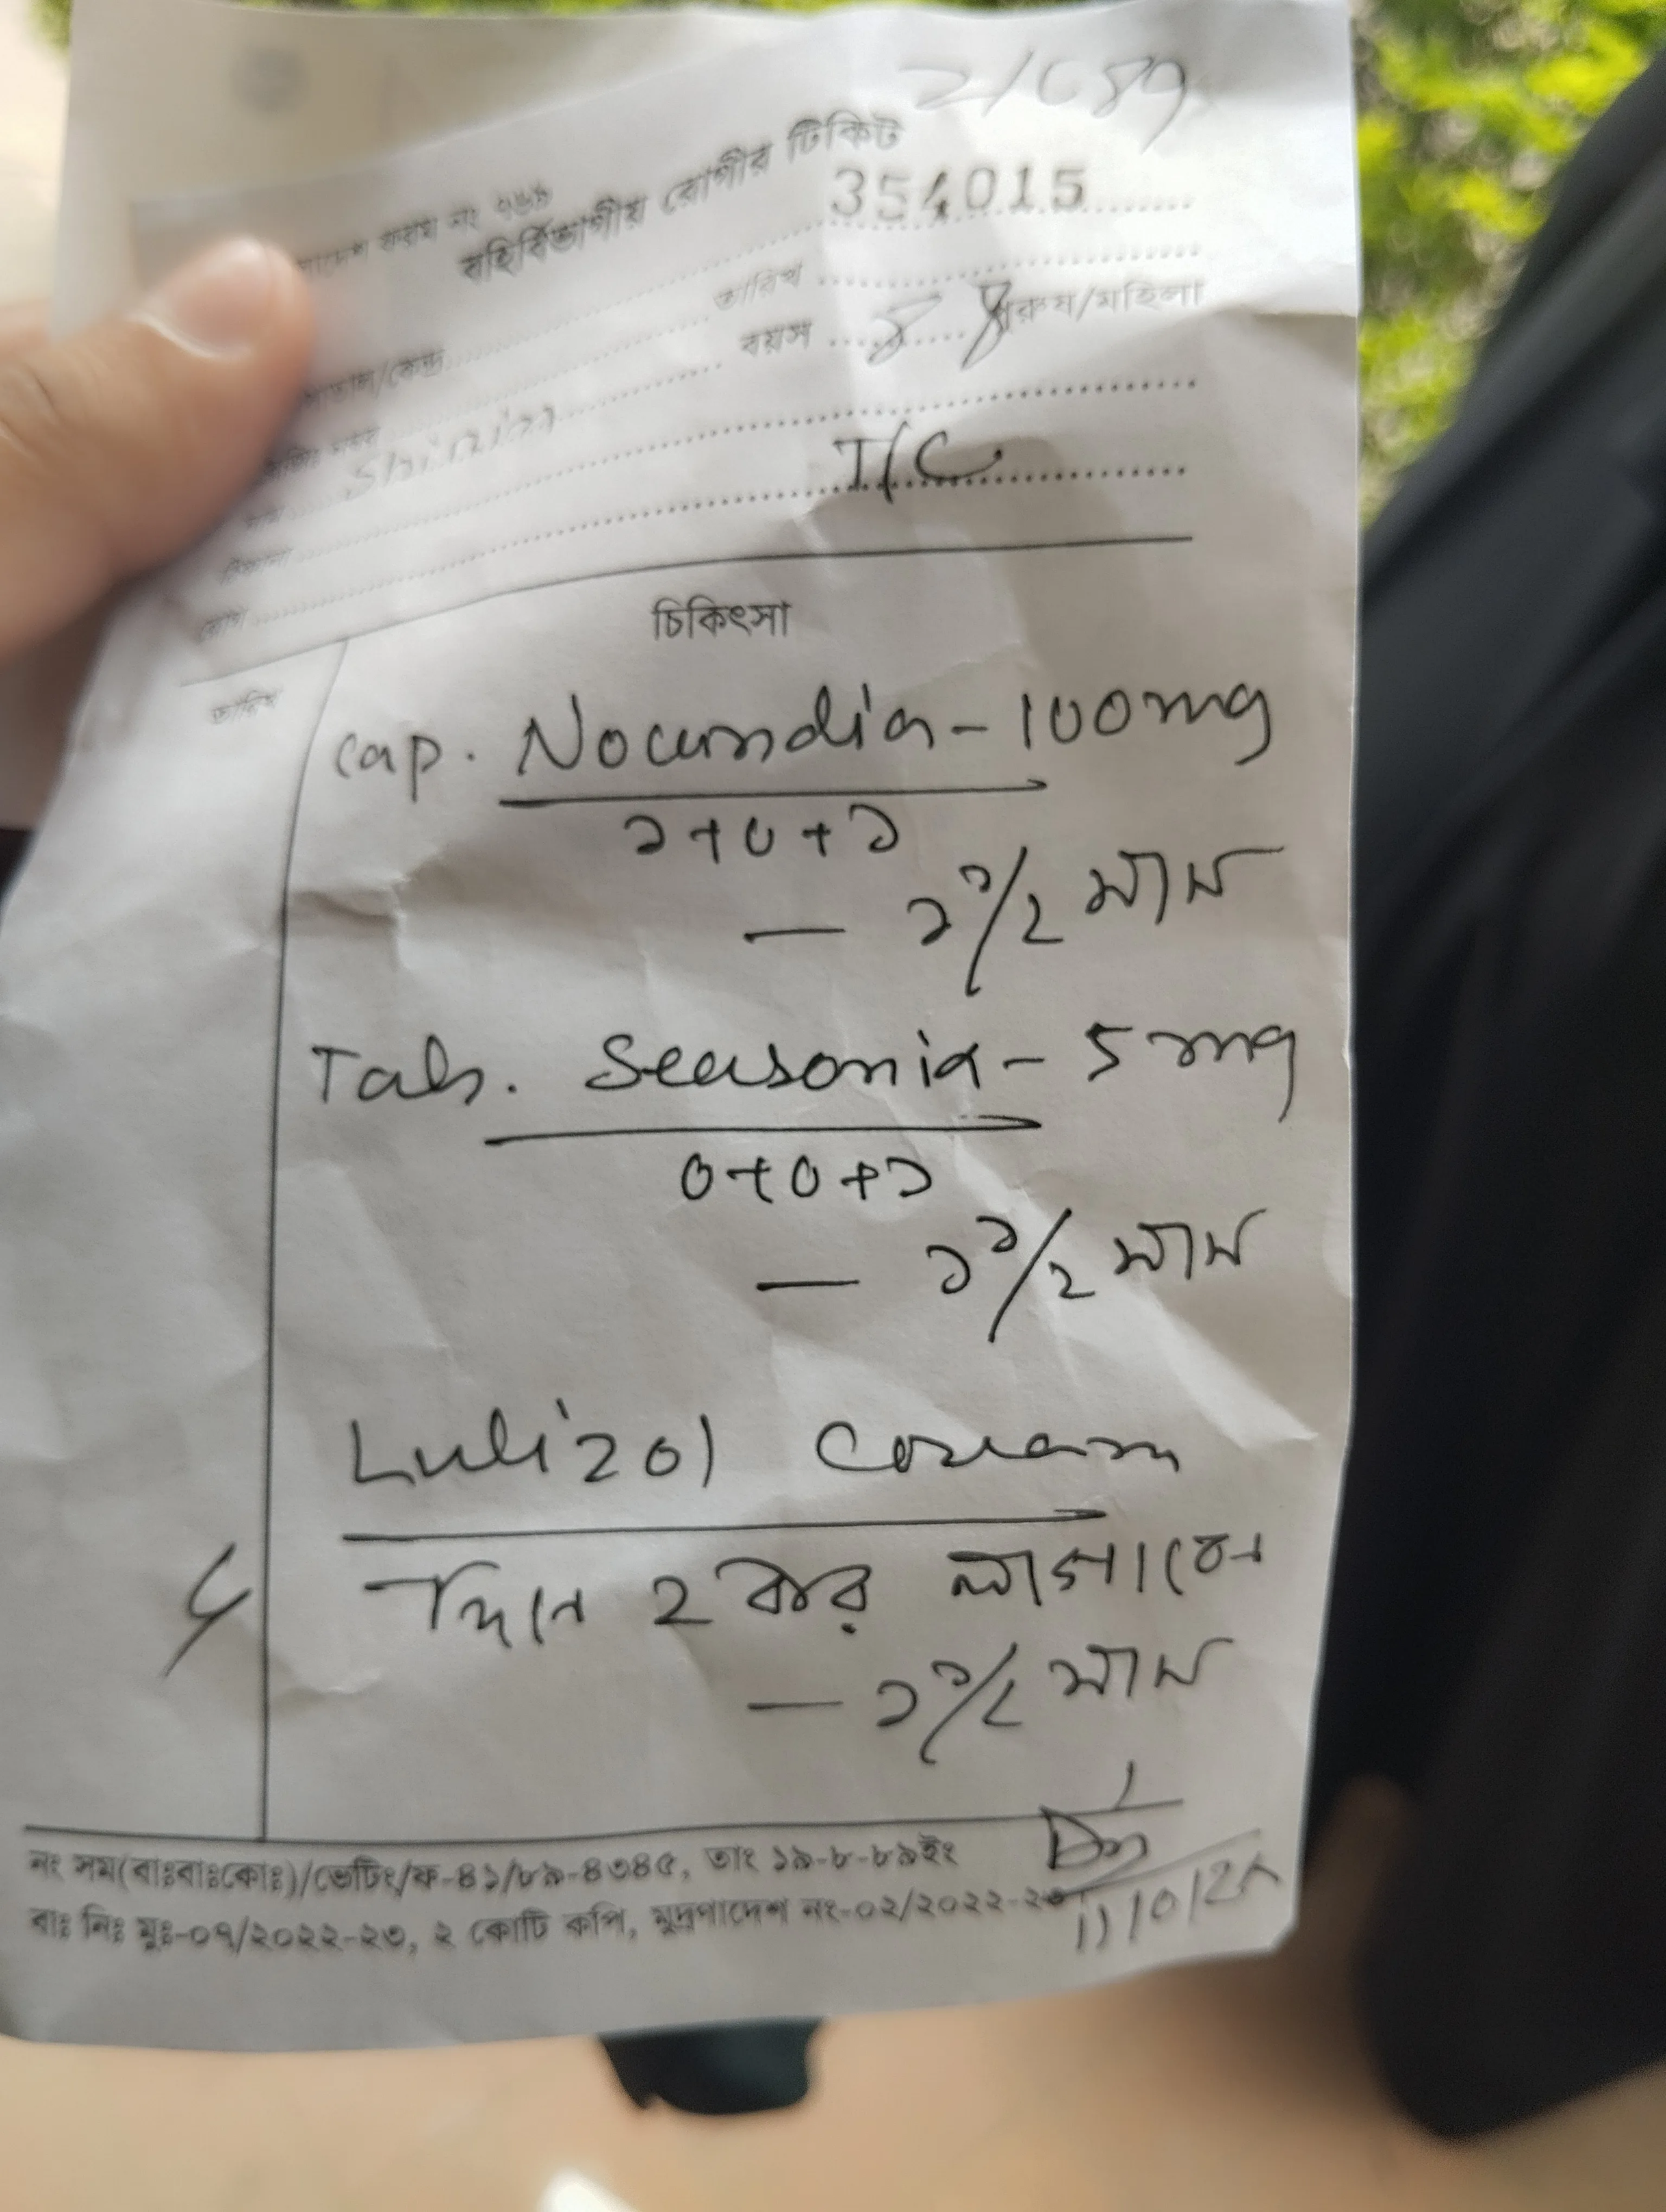 বহির্বিভাগীয় রোগীর টিকিট
354015
তারিখ
বয়স পুরুষ/মহিলা
Shirin
T/C
চিকিৎসা
তারিখ
Cap. Nocandia - 100mg
১+০+১
— ১ ১/২ মাস
Tab. Seasonia - 5 mg
০+০+১
— ১ ১/২ মাস
Lulizol Cream
দিনে ২ বার লাগাবেন
— ১ ১/২ মাস
নং সম(বাঃবাঃকোঃ)/ভেটিং/ফ-৪১/৮৯-৪৩৪৫, তাং ১৯-৮-৮৯ইং
বাঃ নিঃ মুঃ-০৭/২০২২-২৩, ২ কোটি কপি, মুদ্রণাদেশ নং-০২/২০২২-২৩